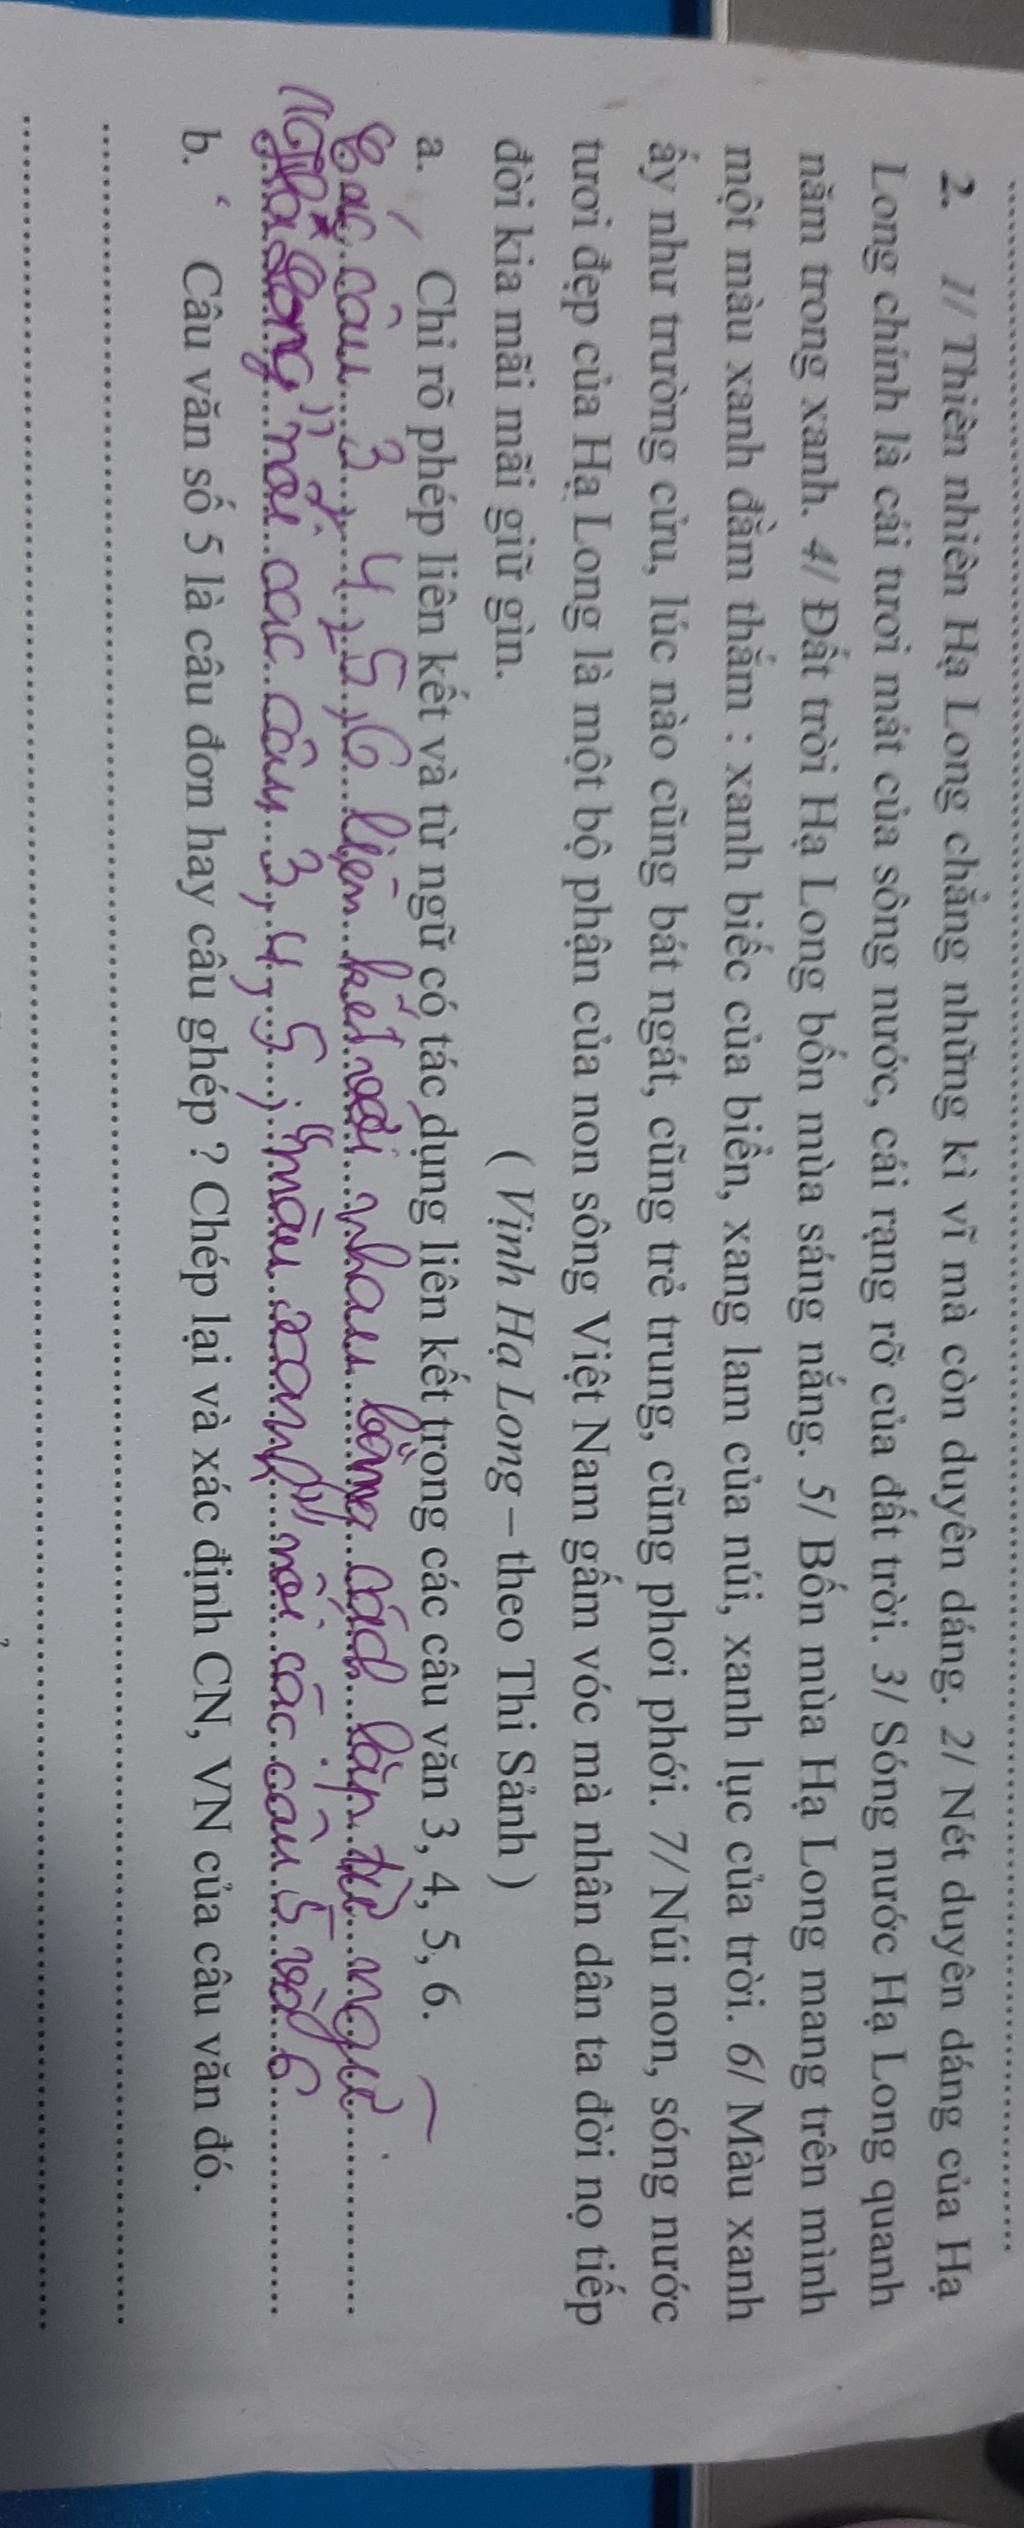 2. 1/ Thiên nhiên Hạ Long chẳng những kì vĩ mà còn duyên dáng. 2/ Nét duyên dáng của Hạ
Long chính là cái tươi mát của sông nước, cái rạng rỡ của đất trời. 3/ Sóng nước Hạ Long quanh
năm trong xanh. 4/ Đất trời Hạ Long bốn mùa sáng nắng. 5/ Bốn mùa Hạ Long mang trên mình
một màu xanh đằm thắm : xanh biếc của biển, xang lam của núi, xanh lục của trời. 6/ Màu xanh
ấy như trường cửu, lúc nào cũng bát ngát, cũng trẻ trung, cũng phơi phới. 7/ Núi non, sóng nước
tươi đẹp của Hạ Long là một bộ phận của non sông Việt Nam gấm vóc mà nhân dân ta đời nọ tiếp
đời kia mãi mãi giữ gìn.
( Vịnh Hạ Long – theo Thi Sảnh )
a. Chỉ rõ phép liên kết và từ ngữ có tác dụng liên kết trong các câu văn 3, 4, 5, 6.
Các câu 3, 4, 5, 6 liên kết với nhau bằng cách lặp từ ngữ.
"Hạ Long" nối các câu 3, 4, 5; "màu xanh" nối các câu 5 và 6
b. Câu văn số 5 là câu đơn hay câu ghép ? Chép lại và xác định CN, VN của câu văn đó.